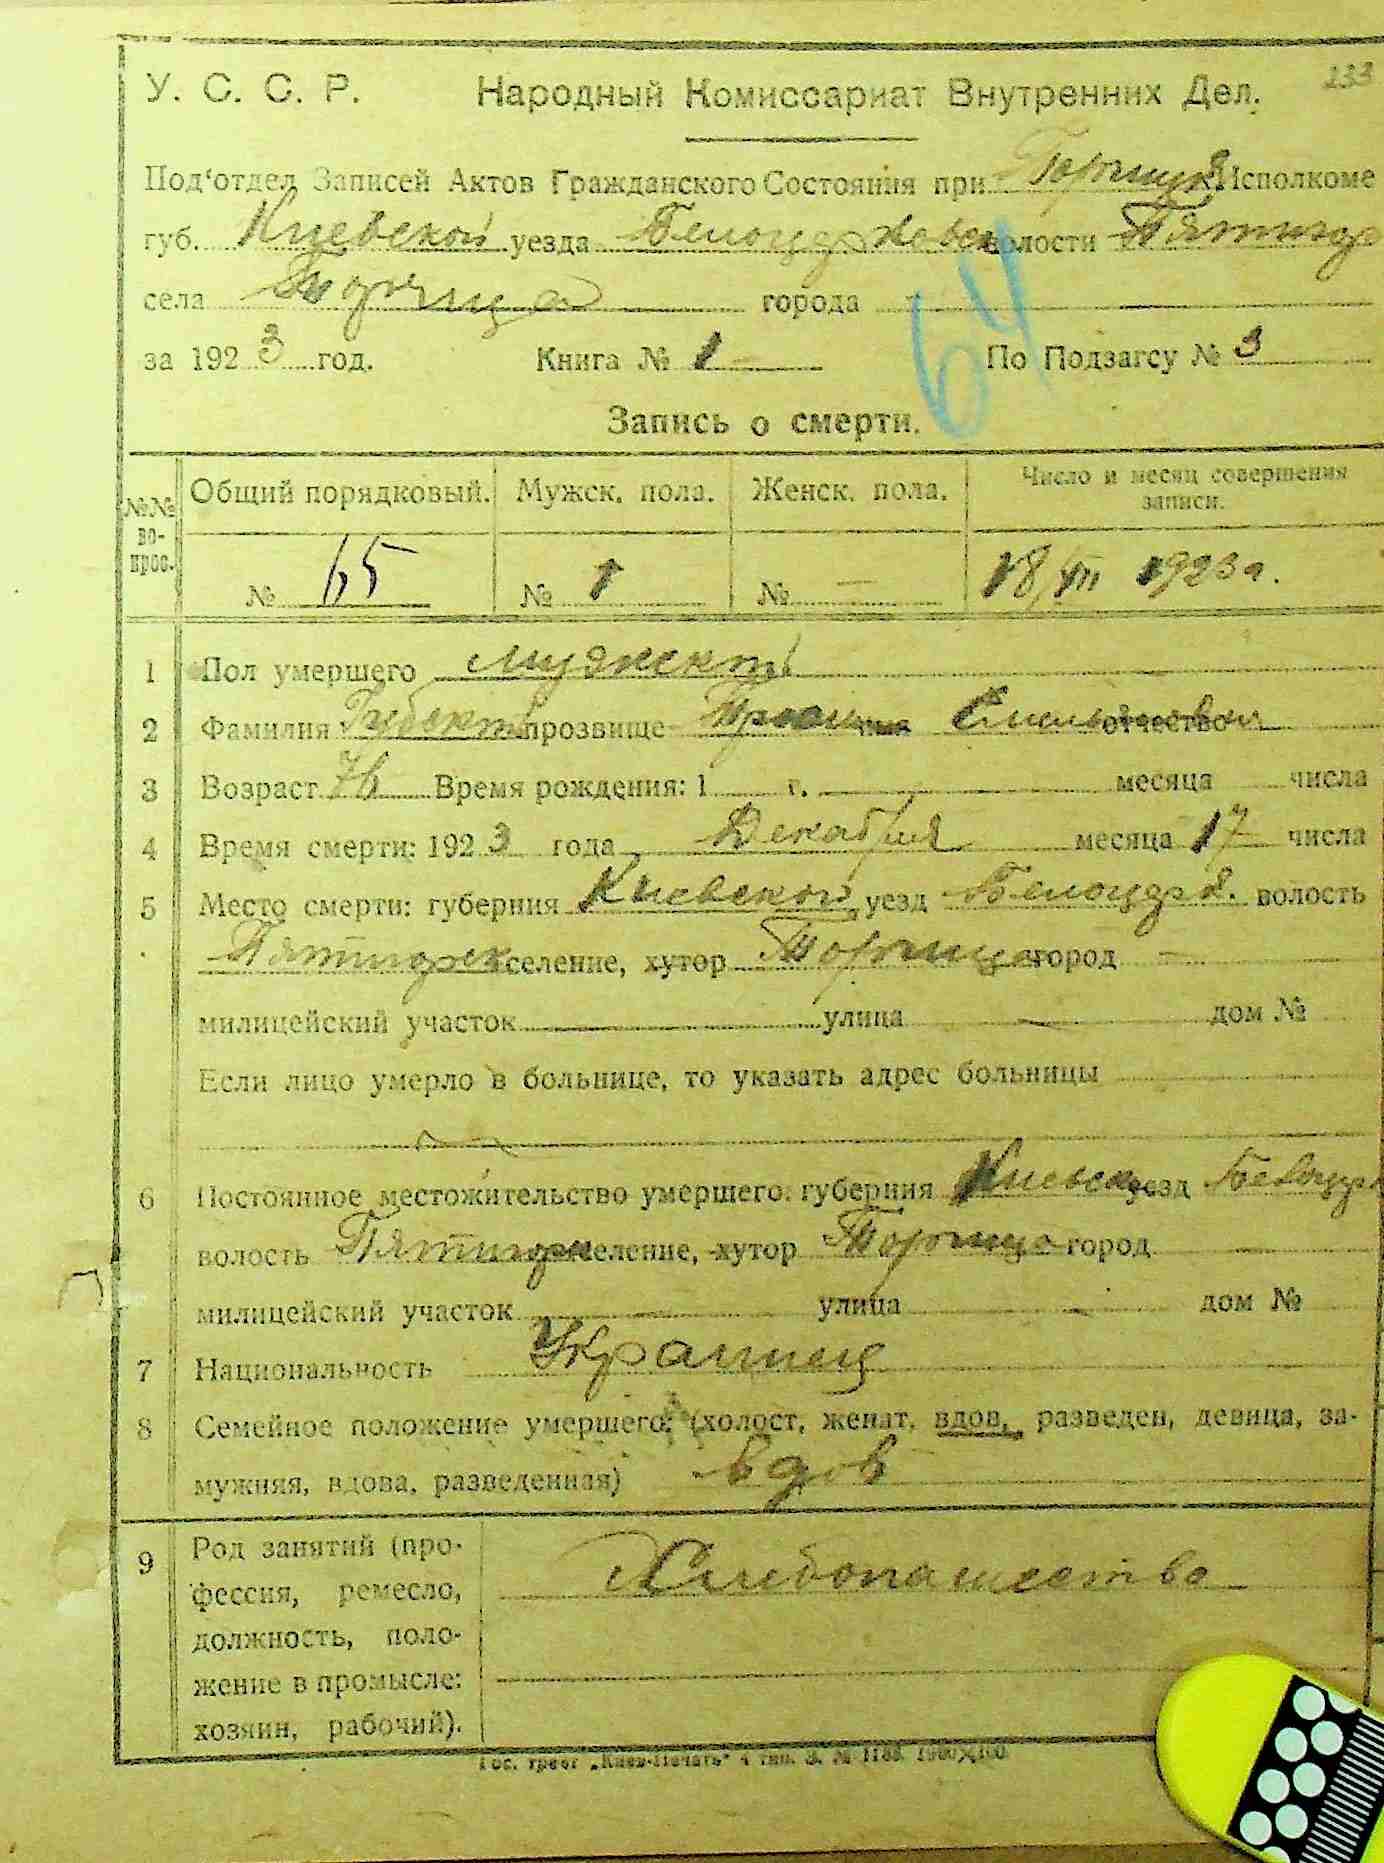 133
У. С. С. Р. Народный Комиссариат Внутренних Дел.
Под'отдел Записей Актов Гражданского Состояния при Исполкоме
губ. Киевской уезда Белоцерковск волости Пятигор
села Торчица города
за 1923 год. Книга № 1 По Подзагсу № 3
64
Запись о смерти.
№№ вопрос. Общий порядковый. Мужск. пола. Женск. пола. Число и месяц совершения записи.
№ 65 № 1 № — 18/XII 1923 г.
1 Пол умершего мужской
2 Фамилия прозвище отчество
3 Возраст 76 Время рождения: 1 г. месяца числа
4 Время смерти: 1923 года Декабря месяца 17 числа
5 Место смерти: губерния Киевской уезд Белоцерк. волость
Пятигорск селение, хутор Торчица город —
милицейский участок — улица — дом №
Если лицо умерло в больнице, то указать адрес больницы
6 Постоянное местожительство умершего: губерния Киевск уезд Белоцерк
волость Пятигор селение, хутор Торчица город
милицейский участок — улица — дом №
7 Национальность Украинец
8 Семейное положение умершего: (холост, женат, вдов, разведен, девица, за-
мужняя, вдова, разведенная) вдов
9 Род занятий (про-
фессия, ремесло, Хлебопашество
должность, поло-
жение в промысле:
хозяин, рабочий).
Гос. трест „Киев-Печать" 4 тип. З. № 1188.